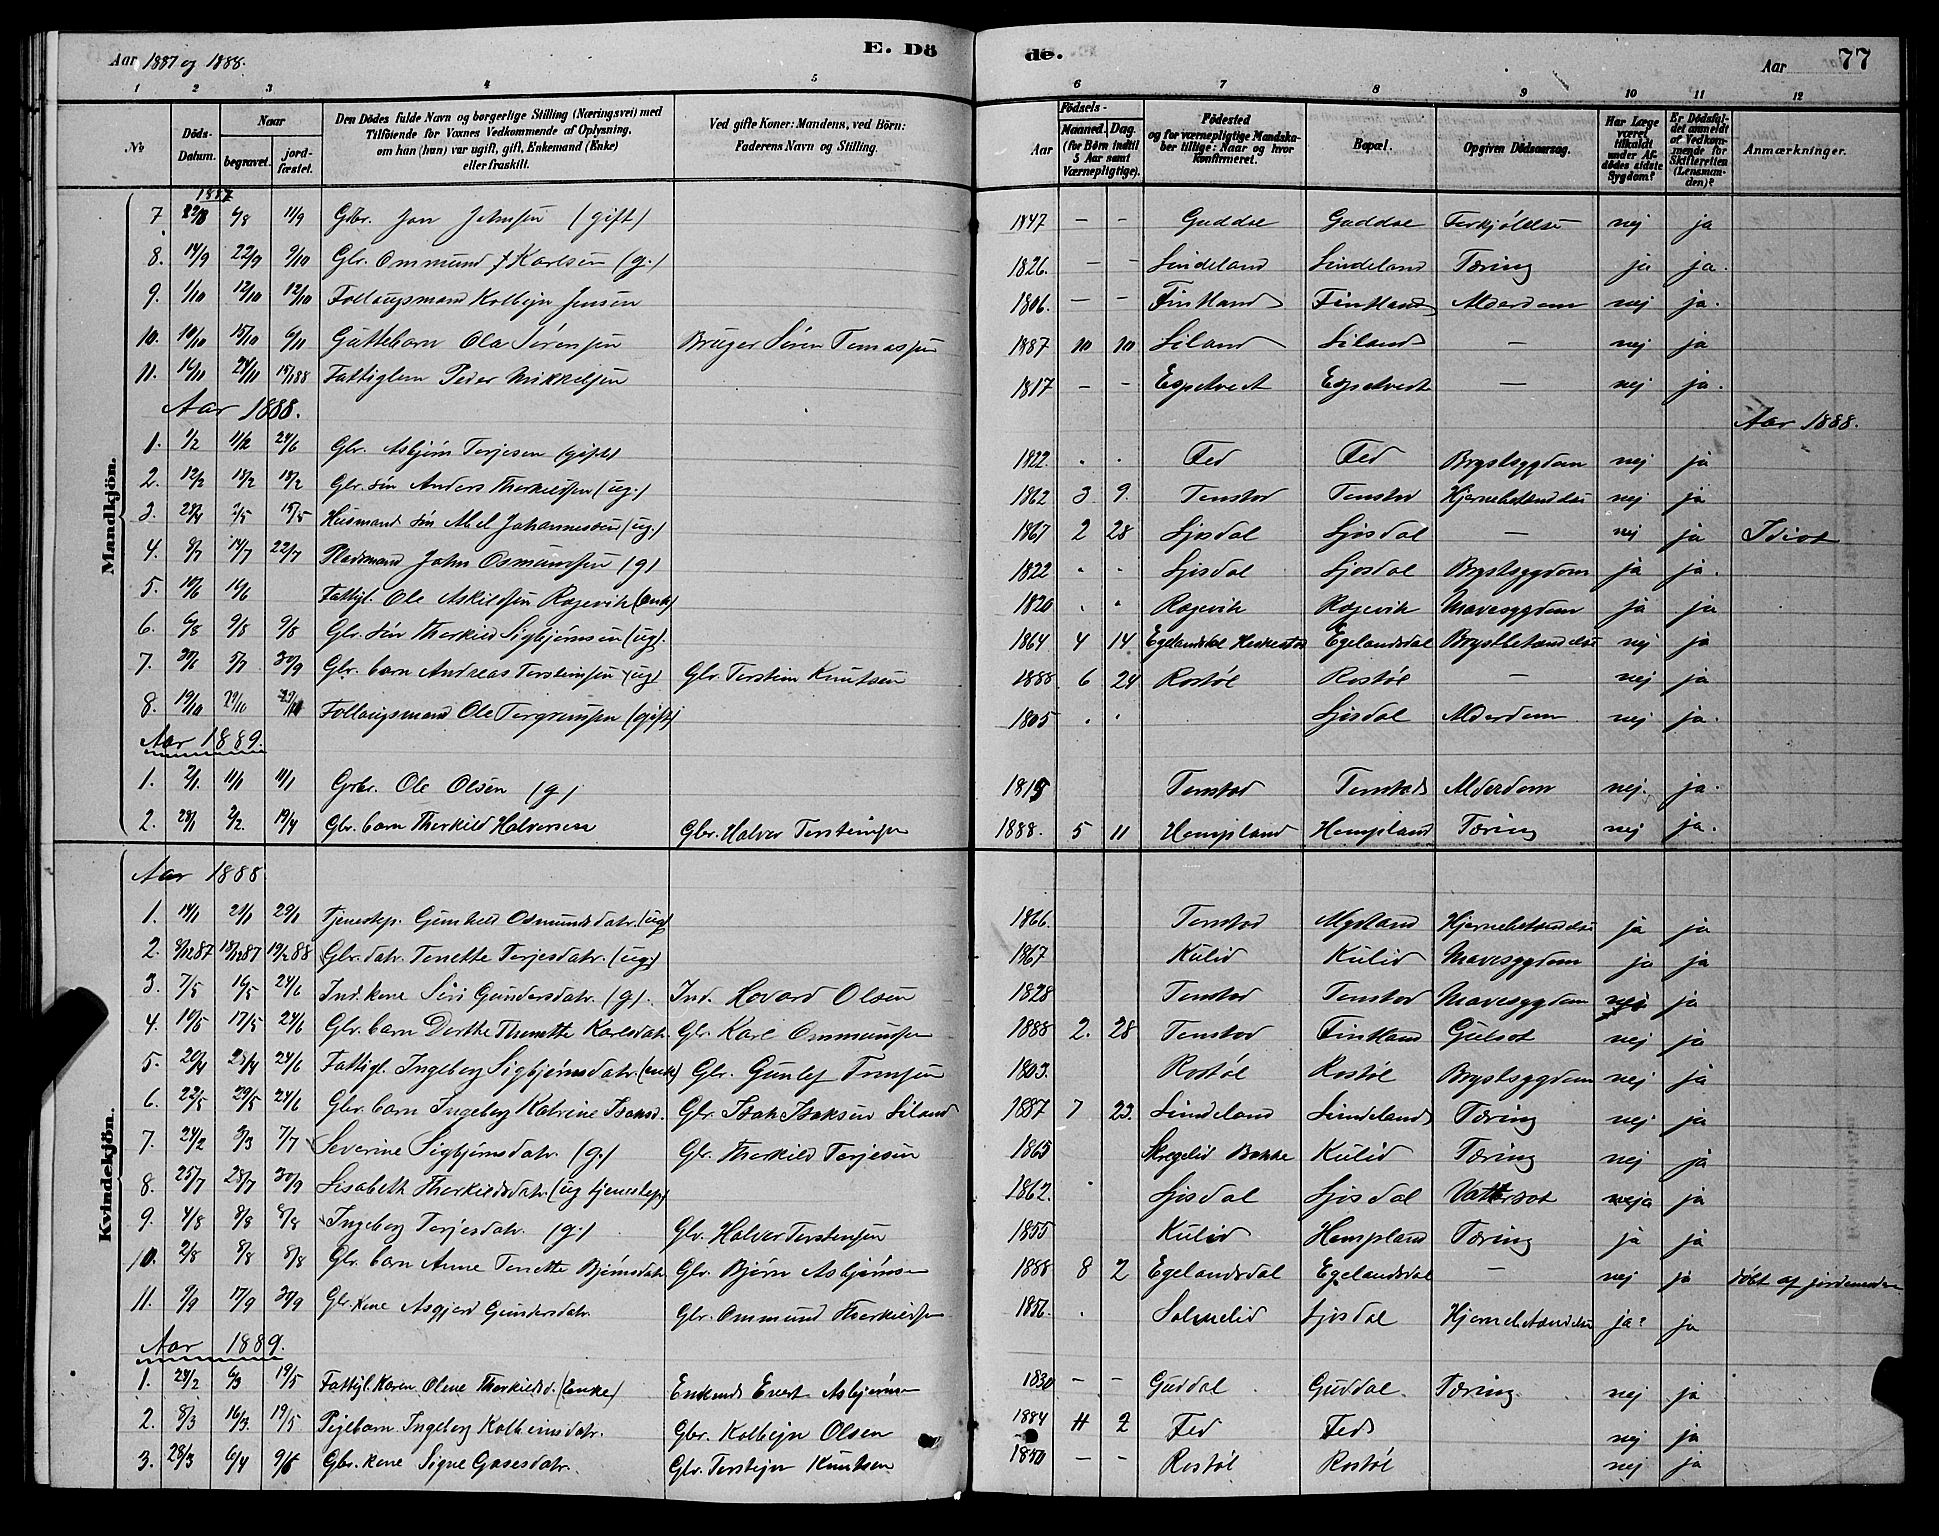 Aar 1887 og 1888.
E. Dö
de.
Aar
77
1 2 3 4 5 6 7 8 9 10 11 12
No
Döds-Datum.
Naar
begravet.
jordfæstet.
Den Dödes fulde Navn og borgerlige Stilling (Næringsvei) med
Tilföiende for Voxnes Vedkommende af Oplysning,
om han (hun) var ugift, gift, Enkemand (Enke)
eller fraskilt.
Ved gifte Koner: Mandens, ved Börn:
Faderens Navn og Stilling.
Födsels-
Aar
Maaned. Dag.
(for Börn indtil
5 Aar samt
Værnepligtige).
Födested
og for værnepligtige Mandskaber tillige: Naar og hvor
Konfirmeret.
Bopæl.
Opgiven Dödsaarsag.
Har Læge
været
tilkaldt
under Afdödes sidste
Sygdom?
Er Dödsfaldet anmeldt
af Vedkommende for
Skifteretten
(Lensmanden)?
Anmærkninger.
Mandkjön.
1887
7 6/8 11/9 Gbr. Jon Johnsen (gift) 1847 – – Gaddal Gaddal Forkjölelse nej ja
8. 14/9 22/9 9/10 Gbr. Ommund Karlsen (g.) 1826. – – Lindeland Lindeland Tæring ja ja.
9. 1/10 12/10 12/10 Follaugsmand Kolbejn Jensen 1806. – – Fintland Fintland Alderdom nej ja.
10. 10/10 15/10 6/10 Guttebarn Ole Sørensen Bruger Sören Tomassen 1887 10 10 Liland Liland – nej ja
11. 16/10 24/10 15/1 88 Fattiglem Peder Mikkelsen 1817 – – Espetvedt Espetvedt – nej ja.
Aar 1888.
Aar 1888.
1. 1/2 11/2 24/6 Gbr. Asbjörn Terjesen (gift) 1822. Fed Fed Brystsygdom nej ja
2. 12/2 18/2 18/2 Gbr. sön Anders Therkildsen (ug.) 1862 3 9. Tonstad Tonstad Hjernebetændelse nej ja
3. 28/4 2/5 15/5 Husmand sön Abel Johannesen (ug) 1867 2 28 Ljosdal Ljosdal – nej ja Idiot
4. 9/7 14/7 22/7 Pladsmand John Osmundsen (g) 1822 Ljosdal Ljosdal Brystsygdom ja ja.
5. 10/6 16/6 Fattigl. Ole Askildsen Røjevik (enk) 1820 Røjevik Røjevik Mavesygdom ja ja
6. 6/8 9/8 9/8 Gbr. sön Therkild Sigbjörnsen (ug). 1864 4 14 Egelandsdal Heskestad Egelandsdal Brystbetændelse nej ja
7. 30/6 5/7 30/9 Gbr. barn Andreas Terstensen (ug) Gbr. Terstein Knutsen 1888 6 24 Rostöl Rostöl – nej ja
8. 19/10 29/10 29/10 Follaugsmand Ole Torgrimsen (gift) 1805 Ljosdal Alderdom nej ja.
Aar 1889.
1. 2/1. 11/1 11/1 Gbr. Ole Olsen (g) 1815 Tonstad Tonstad Alderdom nej. ja.
2. 28/1 2/2. 19/4 Gbr. barn Therkild Halversen Gbr. Halver Terstensen 1888. 5 11 Hompland Hompland Tæring nej ja.
Kvindekjön.
Aar 1888.
1. 14/1 21/1 29/1 Tjenestep. Gunhild Osmundsdatr. (ug) 1866. Tonstad Mydland Hjernebetændelse ja ja
2. 9/12 87 18/12 87 19/2 88 Gbr. datr. Tonette Terjesdatr. (ug.) 1867 Kulid Kulid Mavesygdom ja ja
3. 7/5 16/5 24/6 Ind. kone Siri Gundersdatr. (g). Ind. Hovard Olsen 1828 Tonstad Tonstad Mavesygdom ja
4. 10/5 17/5 24/6 Gbr. barn Dorthe Thonette Karlsdatr. Gbr. Karl Ommundsen 1888 2. 28 Tonstad Fintland Gulsot nej ja
5. 20/4 25/4 24/6 Fattigl. Ingeborg Sigbjörnsdatr. (enke) Gbr. Gunlef Tronsen 1803. Rostöl Rostöl Brystsygdom nej ja
6. 22/5 29/5 24/6 Gbr. barn Ingeborg Katrine Isaksd. Gbr. Isak Isaksen Liland 1887 7 23. Lindeland Lindeland Tæring nej ja
7. 24/2 3/3 7/7 Severine Sigbjörnsdatr. (g.) Gbr. Therkild Terjesen 1865 Skregelid Bakke Kulid Tæring nej ja
8. 25/7 28/7 30/9 Lisabeth Therkildsdatr. (ug tjenestep) 1862. Ljosdal Ljosdal Vattersot ja ja
9. 4/8 8/8 8/8 Ingeborg Terjesdatr. (g.) Gbr. Halver Terstensen 1855 Kulid Hompland Tæring ja ja
10. 2/8 8/8 8/8 Gbr. barn Anne Tonette Björnsdatr. Gbr. Björn Asbjörnsen 1888 8 2 Egelandsdal Egelandsdal – nej ja döbt af jordemoder
11. 9/9 17/9 30/9 Gbr. kone Asgjerd Gundersdatr. Gbr. Ommund Therkildsen 1856. Solmelid Ljosdal Hjernebetændelse ja? ja
Aar 1889.
1. 24/2 6/3 19/5 Fattigl. Karen Oline Therkildsd. (Enke) Enkemd Evert Asbjörnsen 1830 – – Guddal Guddal. Tæring. nej ja
2. 8/3 16/3. 19/5 Pigebarn Ingeborg Kolbeinsdatr. Gbr. Kolbejn Olsen 1884 4 2 Fed Fed nej ja
3. 28/3 6/4 9/6 Gbr. kone Signe Gasesdatr. Gbr. Terstejn Knutsen 1850 – – Rostöl Rostöl nej ja